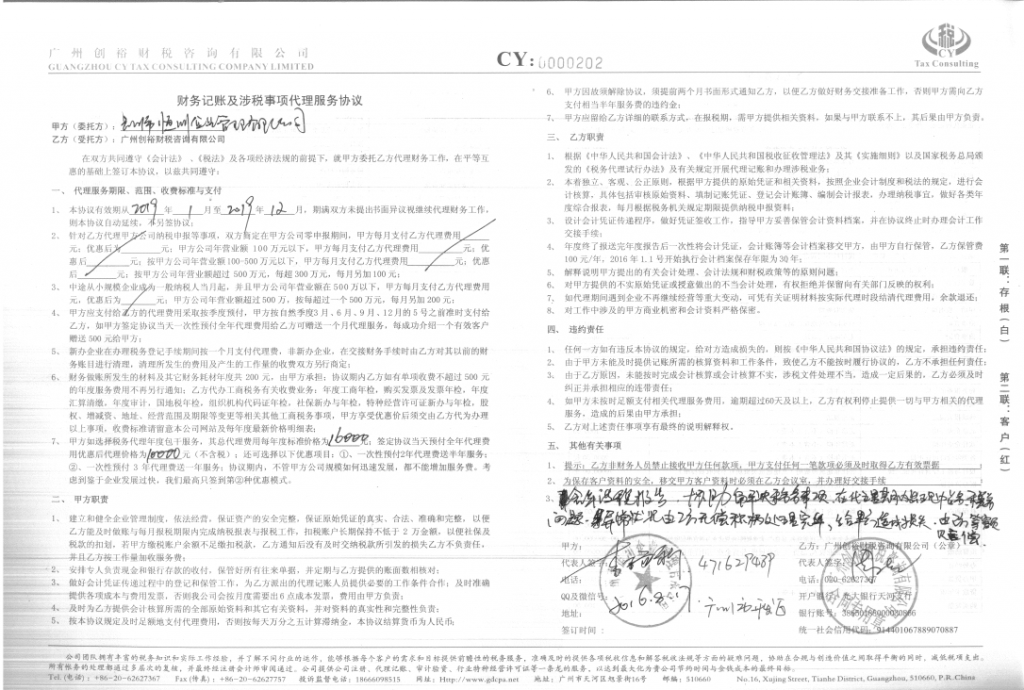 广州创裕财税咨询有限公司
GUANGZHOU CY TAX CONSULTING COMPANY LIMITED
CY: 0000202
Tax Consulting
财务记账及涉税事项代理服务协议
甲方（委托方）：
乙方（受托方）：广州创裕财税咨询有限公司
在双方共同遵守《会计法》、《税法》及各项经济法规的前提下，就甲方委托乙方代理财务工作，在平等互
惠的基础上签订本协议，以兹共同遵守：
一、 代理服务期限、范围、收费标准与支付
1、 本协议有效期从2019年 1 月至2019年12月，期满双方未提出书面异议视继续代理财务工作，
则本协议自动延续，不另签协议；
2、 针对乙方代理甲方公司纳税申报等事项，双方商定在甲方公司零申报期间，甲方每月支付乙方代理费用
元；优惠后为 元；甲方公司年营业额 100 万元以下，甲方每月支付乙方代理费用 元；优
惠后 元；按甲方公司年营业额 100-500 万元以下，甲方每月支付乙方代理费用 元；优惠
后 元；按甲方公司年营业额超过 500 万元，每超 300 万元，每月另加 100 元；
3、 中途从小规模企业成为一般纳税人当月起，并且甲方公司年营业额在 500 万以下，甲方每月支付乙方代理费用
元，优惠后为 元；甲方公司年营业额超过 500 万，按每超过一个 500 万元，每月另加 200 元；
4、 甲方应支付给乙方的代理费用采取按季度预付，甲方按自然季度3月、6月、9月、12月的 5 号之前准时支付给
乙方，如甲方签定协议当天一次性预付全年代理费用给乙方可赠送一个月代理服务，每成功介绍一个有效客户
赠送 500 元给甲方；
5、 新办企业在办理税务登记手续期间按一个月支付代理费，非新办企业，在交接财务手续时由乙方对其以前的财
务账目进行清理，清理所发生的费用及产生的工作量的收费双方另行商定；
6、 财务做账所发生的材料及其它财务耗材年度共 200 元，由甲方承担；协议期内乙方如有单项收费不超过 500 元
的年度服务费用不再另行通知；乙方代办工商税务有关收费业务：年度工商年检，购买发票及发票年检，年度
汇算清缴，年度审计，国地税年检、组织机构代码证年检、社保新办与年检、特种经营许可证新办与年检，股
权、增减资、地址、经营范围及期限等变更等相关其他工商税务事项，甲方享受优惠价后须交由乙方代为办理
以上事项，收费标准请留意本公司网站及每年度最新价格明细表；
7、 甲方如选择税务代理年度包干服务，其总代理费用每年度标准价格为16000元；签定协议当天预付全年代理费
用优惠后代理价格为10000元（不含税）；还可选择以下优惠项目：①、一次性预付2年代理费送半年服务；
②、一次性预付 3 年代理费送一年服务；协议期内，不管甲方公司规模如何迅速发展，都不能增加服务费。考
虑到鉴于企业发展过快，我们最高只签到第②种优惠模式。
二、 甲方职责
1、 建立和健全企业管理制度，依法经营，保证资产的安全完整，保证原始凭证的真实、合法、准确和完整，以便
乙方能及时做账与每月报税期限内完成纳税报表与报税工作，扣税账户长期保持不低于 2 万金额，以便社保及
税款的扣划，若甲方缴税账户余额不足缴扣税款，乙方通知后没有及时交纳税款所引发的损失乙方不负责任，
并且乙方按工作量加收服务费；
2、 安排专人负责现金和银行存款的收付，保管好所有往来单据，并定期与乙方提供的账面数相核对；
3、 做好会计凭证传递过程中的登记和保管工作，为乙方派出的代理记账人员提供必要的工作条件合作；及时准确
提供各项成本与费用发票，否则我公司会按月度需要出 6 点成本发票，费用由甲方负责；
4、 及时为乙方提供会计核算所需的全部原始资料和其它有关资料，并对资料的真实性和完整性负责；
5、 按本协议规定及时足额地支付代理费用，否则按每天万分之五计算滞纳金。本协议结算货币为人民币；
6、 甲方因故须解除协议，须提前两个月书面形式通知乙方，以便乙方做好财务交接准备工作，否则甲方需向乙方
支付相当半年服务费的违约金；
7、 甲方应留给乙方详细的联系方式，在报税期，需甲方提供相关资料，如果与甲方联系不上，其后果由甲方负责。
三、 乙方职责
1、 根据《中华人民共和国会计法》、《中华人民共和国税收征收管理法》及其《实施细则》以及国家税务总局颁
发的《税务代理试行办法》及有关规定开展代理记账和办理涉税业务；
2、 本着独立、客观、公正原则，根据甲方提供的原始凭证和相关资料，按照企业会计制度和税法的规定，进行会
计核算。具体包括审核原始资料、填制记账凭证、登记会计账簿、编制会计报表，办理纳税事宜，做好各类年
度综合报表，每月根据税务机关规定期限提供纳税申报资料；
3、 设计会计凭证传递程序、做好凭证签收工作，指导甲方妥善保管会计资料档案，并在协议终止时办理会计工作
交接手续；
4、 年度终了报送完年度报告后一次性将会计凭证，会计账簿等会计档案移交甲方，由甲方自行保管，乙方保管费
100 元/年。2016 年 1.1 号开始执行会计档案保存年限为30 年；
5、 解释说明甲方提出的有关会计处理、会计法规和财税政策等的原则问题；
6、 对甲方提供的不实原始凭证或授意做出的不当会计处理，有权拒绝并保留向有关部门反映的权利；
7、 如代理期间遇到企业不再继续经营等重大变动，可凭有关证明材料按实际代理时段结清代理费用，余款退还；
8、 对工作中涉及的甲方商业机密和会计资料严格保密。
四、 违约责任
1、 任何一方如有违反本协议的规定，给对方造成损失的，则按《中华人民共和国协议法》的规定，承担违约责任；
2、 由于甲方未能及时提供记账所需的核算资料和工作条件，致使乙方不能按时履行协议的，乙方不承担任何责任；
3、 由于乙方原因，未能按时完成会计核算或会计核算不实，涉税文件处理不当，造成一定后果的，乙方必须及时
纠正并承担相应的连带责任；
4、 如甲方未按时足额支付相关代理服务费用，逾期超过60天及以上，乙方有权利停止提供一切与甲方相关的代理
服务，造成的后果由甲方承担；
5、 乙方对上述责任事项享有最终的说明解释权。
五、 其他有关事项
1、 提示：乙方非财务人员禁止接收甲方任何款项，甲方支付任何一笔款项必须及时取得乙方有效票据
2、 为保存客户资料的安全，移交甲方客户资料时必须在乙方会议室，并办理好交接手续
3、
甲方：
代表人签字：
电话：
QQ及微信号：
地址：
签订时间：
乙方：广州创裕财税咨询有限公司（公章）
代表人签字：
电话：020-62627367
开户银行：光大银行天河支行
银行账号：
统一社会信用代码：914401067889070887
第一联：存根（白）
第二联：客户（红）
公司团队拥有丰富的税务知识和实际工作经验，并了解不同行业的运作，能够根据每个客户的需求和目标提供前瞻性的税务服务，准确及时的提供各项税收信息和解答税收法规等方面的疑难问题，协助在合规与创造价值之间取得平衡的同时，减低税项支出。
所有账务的处理都通过多层次的复核，并最终经注册会计师审阅通过。公司提供公司注册，代理记账，审计验资，行业特种经营许可证等一条龙的服务，以达到最大化为贵公司节约时间与金钱成本的最终目标。
Tel（电话）：+86-20-62627367 Fax（传真）：+86-20-62627757 投诉监督电话：18666098515 网址：Http://www.gdcpa.net 地址：广州市天河区旭景街16号 邮编：510660 No.16, Xujing Street, Tianhe District, Guangzhou, 510660, P.R.China